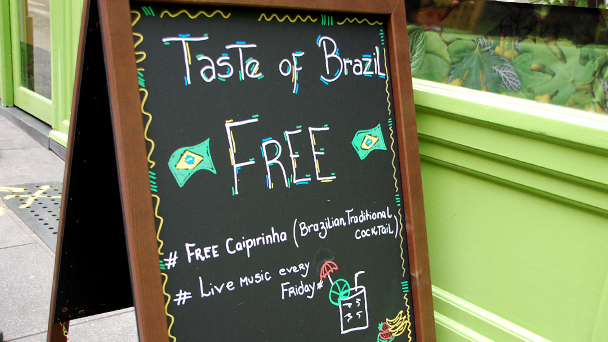 Taste of Brazil
FREE
# FREE Caipirinha (Brazilian Traditional
COCKTAIL)
# Live MUSIC EVERY
Friday#